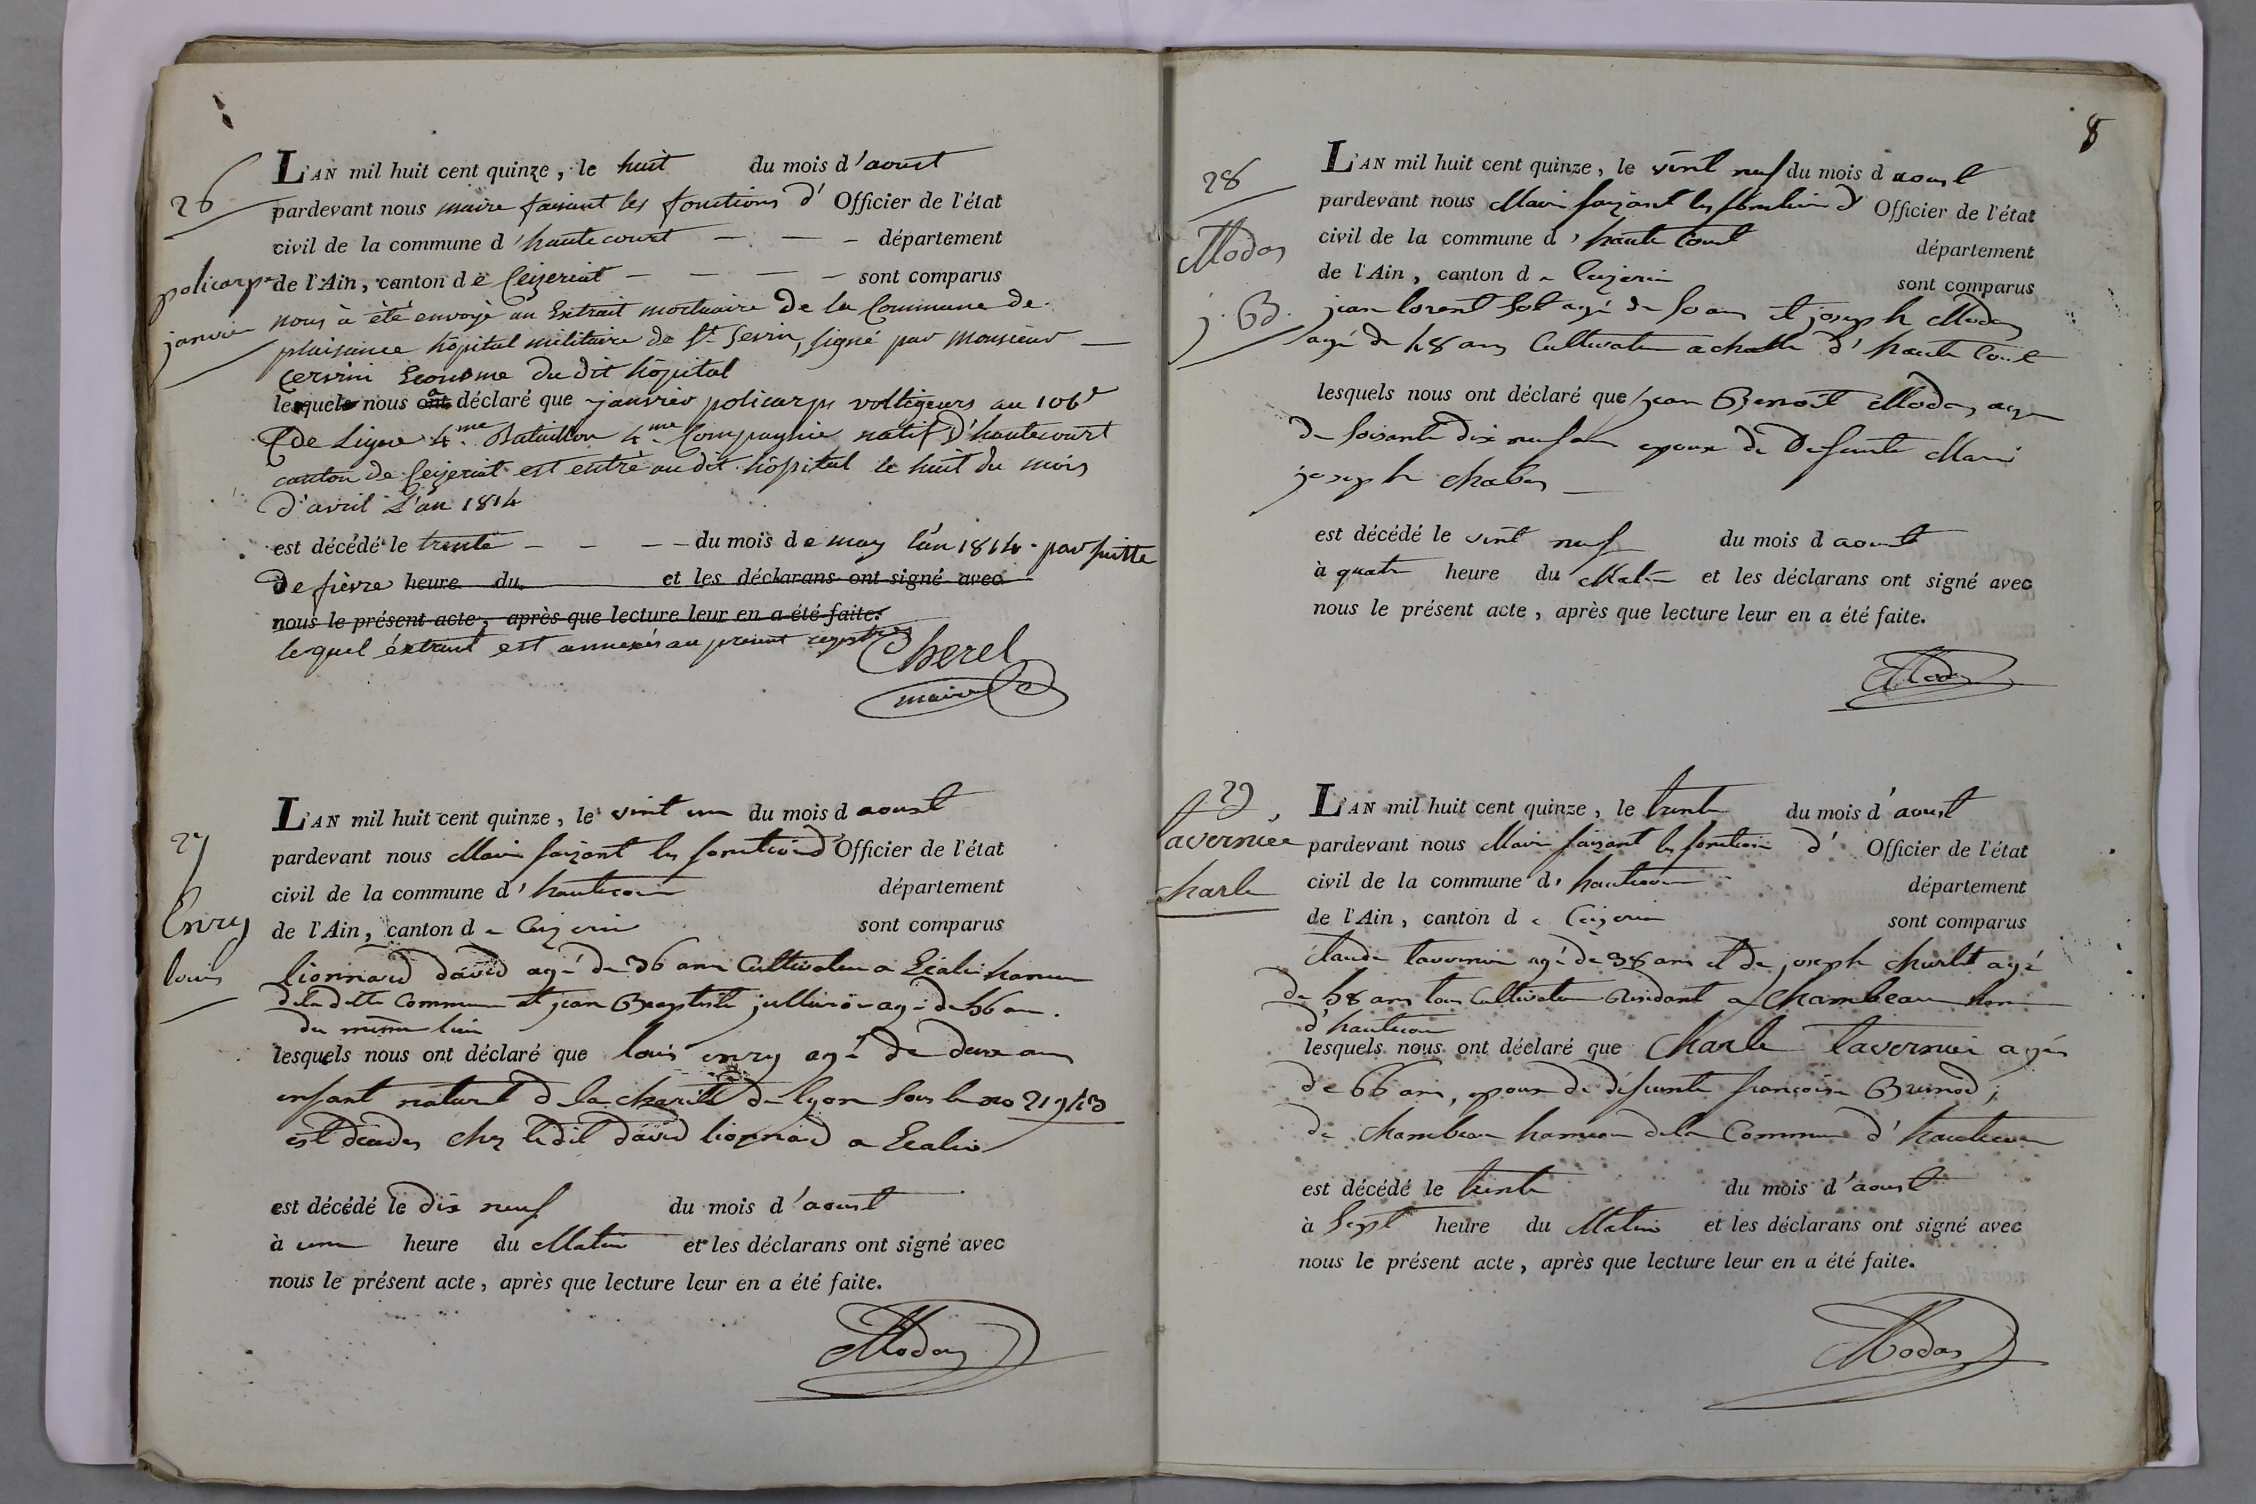 26
policarpe
janvier
L'AN mil huit cent quinze, le huit du mois d'aoust
pardevant nous maire faisant les fonctions d' Officier de l'état
civil de la commune d'hautecourt — — — département
de l'Ain, canton de Ceizeriat — — — — sont comparus
nous à été envoyé un Extrait mortuaire de la Commune de
plaisance hôpital militaire de St Sevin, signé par monsieur —
Cervini Econome du dit hôpital
lesquels nous a déclaré que janvier policarpe voltigeurs au 106e
de Ligne 4me Bataillon 4me Compagnie natif d'hautecourt
canton de Ceizeriat est entré au dit hôpital le huit du mois
d'avril L'an 1814
est décédé le trente — — — du mois de may l'an 1814 par suitte
de fièvre heure du et les déclarans ont signé avec
nous le présent acte, après que lecture leur en a été faite.
lequel éxtrait est annexés au présent registre
Cherel
maire
27
Enry
louis
L'AN mil huit cent quinze, le vint un du mois d aoust
pardevant nous Maire faizant les fonctions d'Officier de l'état
civil de la commune d'hautecour département
de l'Ain, canton de Ceyzeria sont comparus
lionnard david agé de 36 ans Cultivateur a hameau
de la dette Commune et jean Baptiste agé de 56 ans
du même lieu
lesquels nous ont déclaré que louis enry agé de deux ans
enfant naturel de la charité de lyon sous le no 21943
est décédes chez ledit david lionnard a
est décédé le dix neuf du mois d'aoust
à une heure du Matin et les déclarans ont signé avec
nous le présent acte, après que lecture leur en a été faite.
Modas
8
28
Modas
j. B.
L'AN mil huit cent quinze, le vint neuf du mois d aoust
pardevant nous Maire faizant les fonction d' Officier de l'état
civil de la commune d'haute Court département
de l'Ain, canton de Ceyzeria sont comparus
jean lorent agé de 50 ans et joseph Modas
agé de 48 ans Cultivateur a d'haute Court
lesquels nous ont déclaré que jean Benoit Modas agé
de soisante dix neuf ans epoux de Defeunte Marie
joseph Chabas —
est décédé le vint neuf du mois d aoust
à quatre heure du Matin et les déclarans ont signé avec
nous le présent acte, après que lecture leur en a été faite.
Modas
29
taverniée
charle
L'AN mil huit cent quinze, le trente du mois d'aoust
pardevant nous Maire faizant les fonction d' Officier de l'état
civil de la commune d'hautecour département
de l'Ain, canton de Ceyzeria sont comparus
Claude tavernier agé de 38 ans et de joseph Charlet agé
de 58 ans tous Cultivateur Residant a Chambeau
d'hautecour
lesquels nous ont déclaré que Charle tavernier agés
de 66 ans, epoux de défeunte françoise Brunod,
de Chambeau hameau de la Commune d'hautecour
est décédé le trente du mois d'aoust
à Sept heure du Matin et les déclarans ont signé avec
nous le présent acte, après que lecture leur en a été faite.
Modas